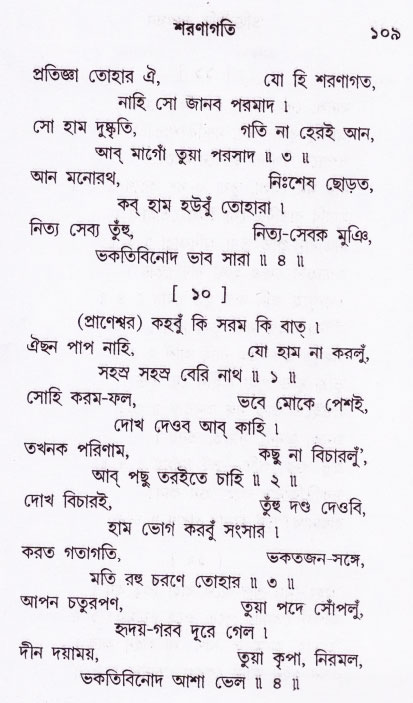 শরণাগতি ১০৯
প্রতিজ্ঞা তোহার ঐ, যো হি শরণাগত,
নাহি সো জানব পরমাদ ।
সো হাম দুষ্কৃতি, গতি না হেরই আন,
আব্ মাগোঁ তুয়া পরসাদ ॥ ৩ ॥
আন মনোরথ, নিঃশেষ ছোড়ত,
কব্ হাম হউবুঁ তোহারা ।
নিত্য সেব্য তুঁহু, নিত্য-সেবক মুঞি,
ভকতিবিনোদ ভাব সারা ॥ ৪ ॥
[ ১০ ]
(প্রাণেশ্বর) কহবুঁ কি সরম কি বাত্ ।
ঐছন পাপ নাহি, যো হাম না করলুঁ,
সহস্র সহস্র বেরি নাথ ॥ ১ ॥
সোহি করম-ফল, ভবে মোকে পেশই,
দোখ দেওব আব্ কাহি ।
তখনক পরিণাম, কছু না বিচারলুঁ,
আব্ পছু তরইতে চাহি ॥ ২ ॥
দোখ বিচারই, তুঁহু দণ্ড দেওবি,
হাম ভোগ করবুঁ সংসার ।
করত গতাগতি, ভকতজন-সঙ্গে,
মতি রহু চরণে তোহার ॥ ৩ ॥
আপন চতুরপণ, তুয়া পদে সোঁপলুঁ,
হৃদয়-গরব দূরে গেল ।
দীন দয়াময়, তুয়া কৃপা, নিরমল,
ভকতিবিনোদ আশা ভেল ॥ ৪ ॥